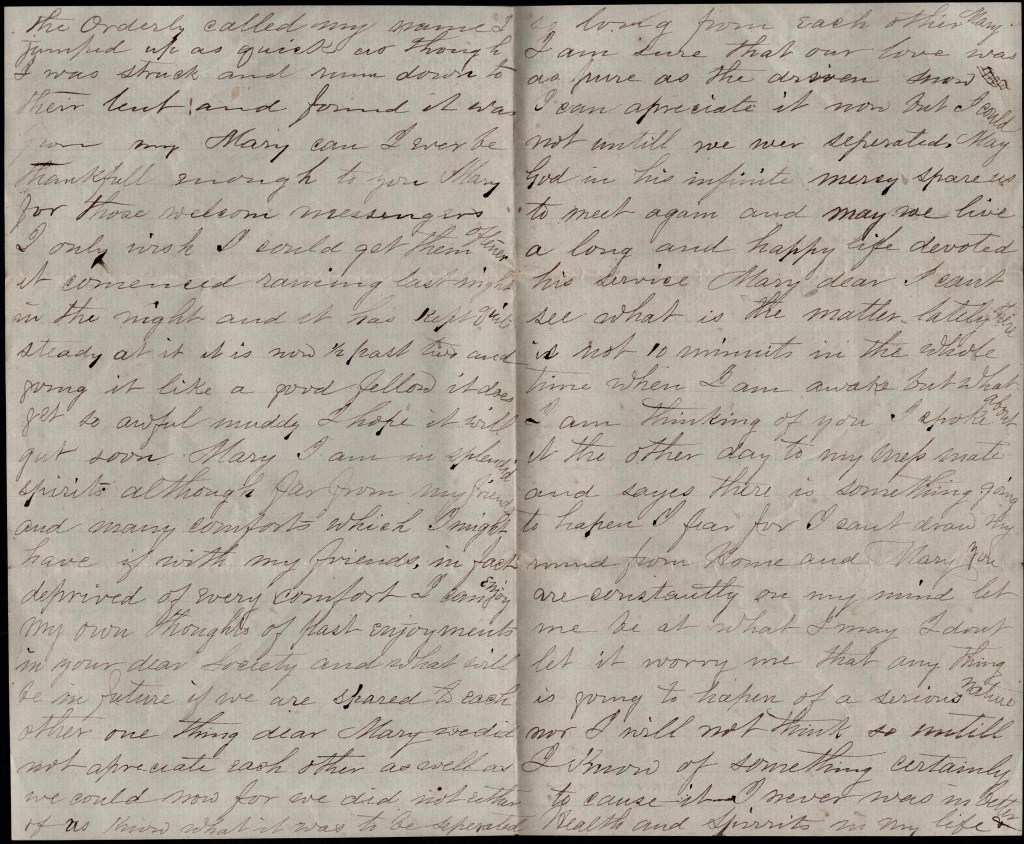 the Orderly called my name I
jumped up as quick as though
I was struck and runn down to
their tent and found it was
from my Mary can I ever be
thankfull enough to you Mary
for those welcom messengers
I only wish I could get them oftener
it comenced raining last night
in the night and it has kept quite
steady at it it is now ½ past two and
going it like a good fellow it does
get so awful muddy I hope it will
quit soon Mary I am in splendid
spirits although far from my friends
and many comforts which I might
have if with my friends, in fact
deprived of every comfort I can enjoy
my own thoughts of past enjoyments
in your dear Society and what will
be in future if we are spared to each
other one thing dear Mary we did
not apreciate each other as well as
we could now for we did not either
of us know what it was to be seperated
so long from each other Mary
I am sure that our love was
as pure as the driven snow
I can apreciate it now but I could
not untill we wer seperated. May
God in his infinite mercy spare us
to meet again and may we live
a long and happy life devoted
his service Mary dear I cant
see what is the matter lately there
is not 10 minuits in the whole
time when I am awake but what
I am thinking of you I spoke about
it the other day to my mess mate
and sayes there is something going
to hapen I fear for I cant draw my
mind from Home and Mary you
are constantly on my mind let
me be at what I may I dont
let it worry me that any thing
is going to hapen of a serious nature
nor I will not think so untill
I know of something certainly
to cause it I never was in better
Health and Spirrits in my life &